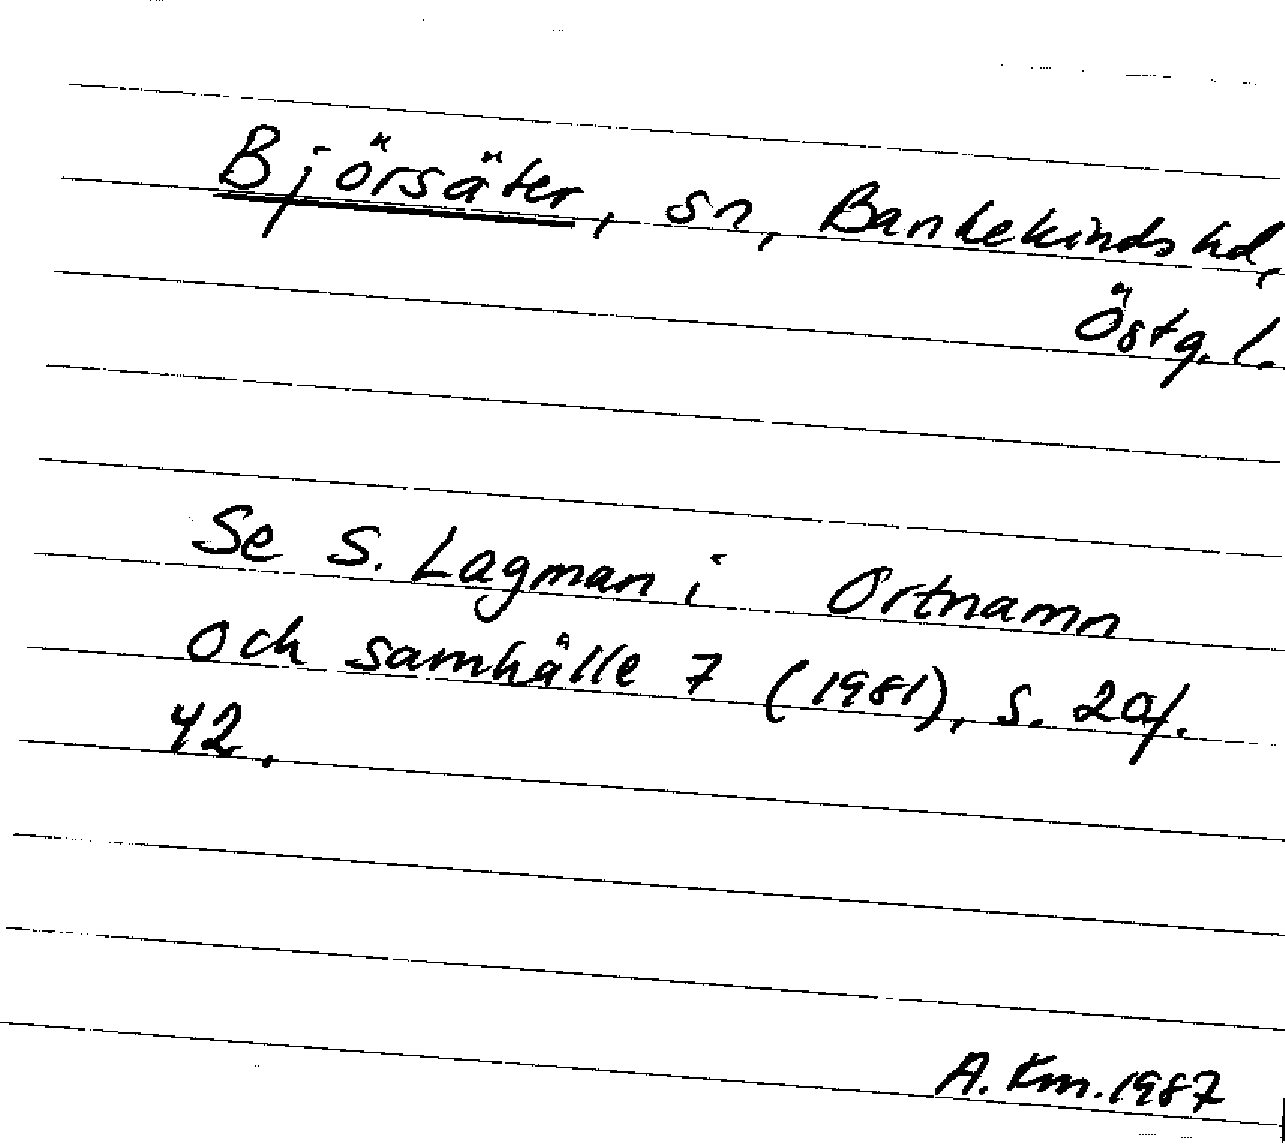 Björsäter, sn, Bankekinds hd,
Östg. l.
Se S. Lagman i Ortnamn
och samhälle 7 (1981), s. 20f.
42.
A. Km. 1987